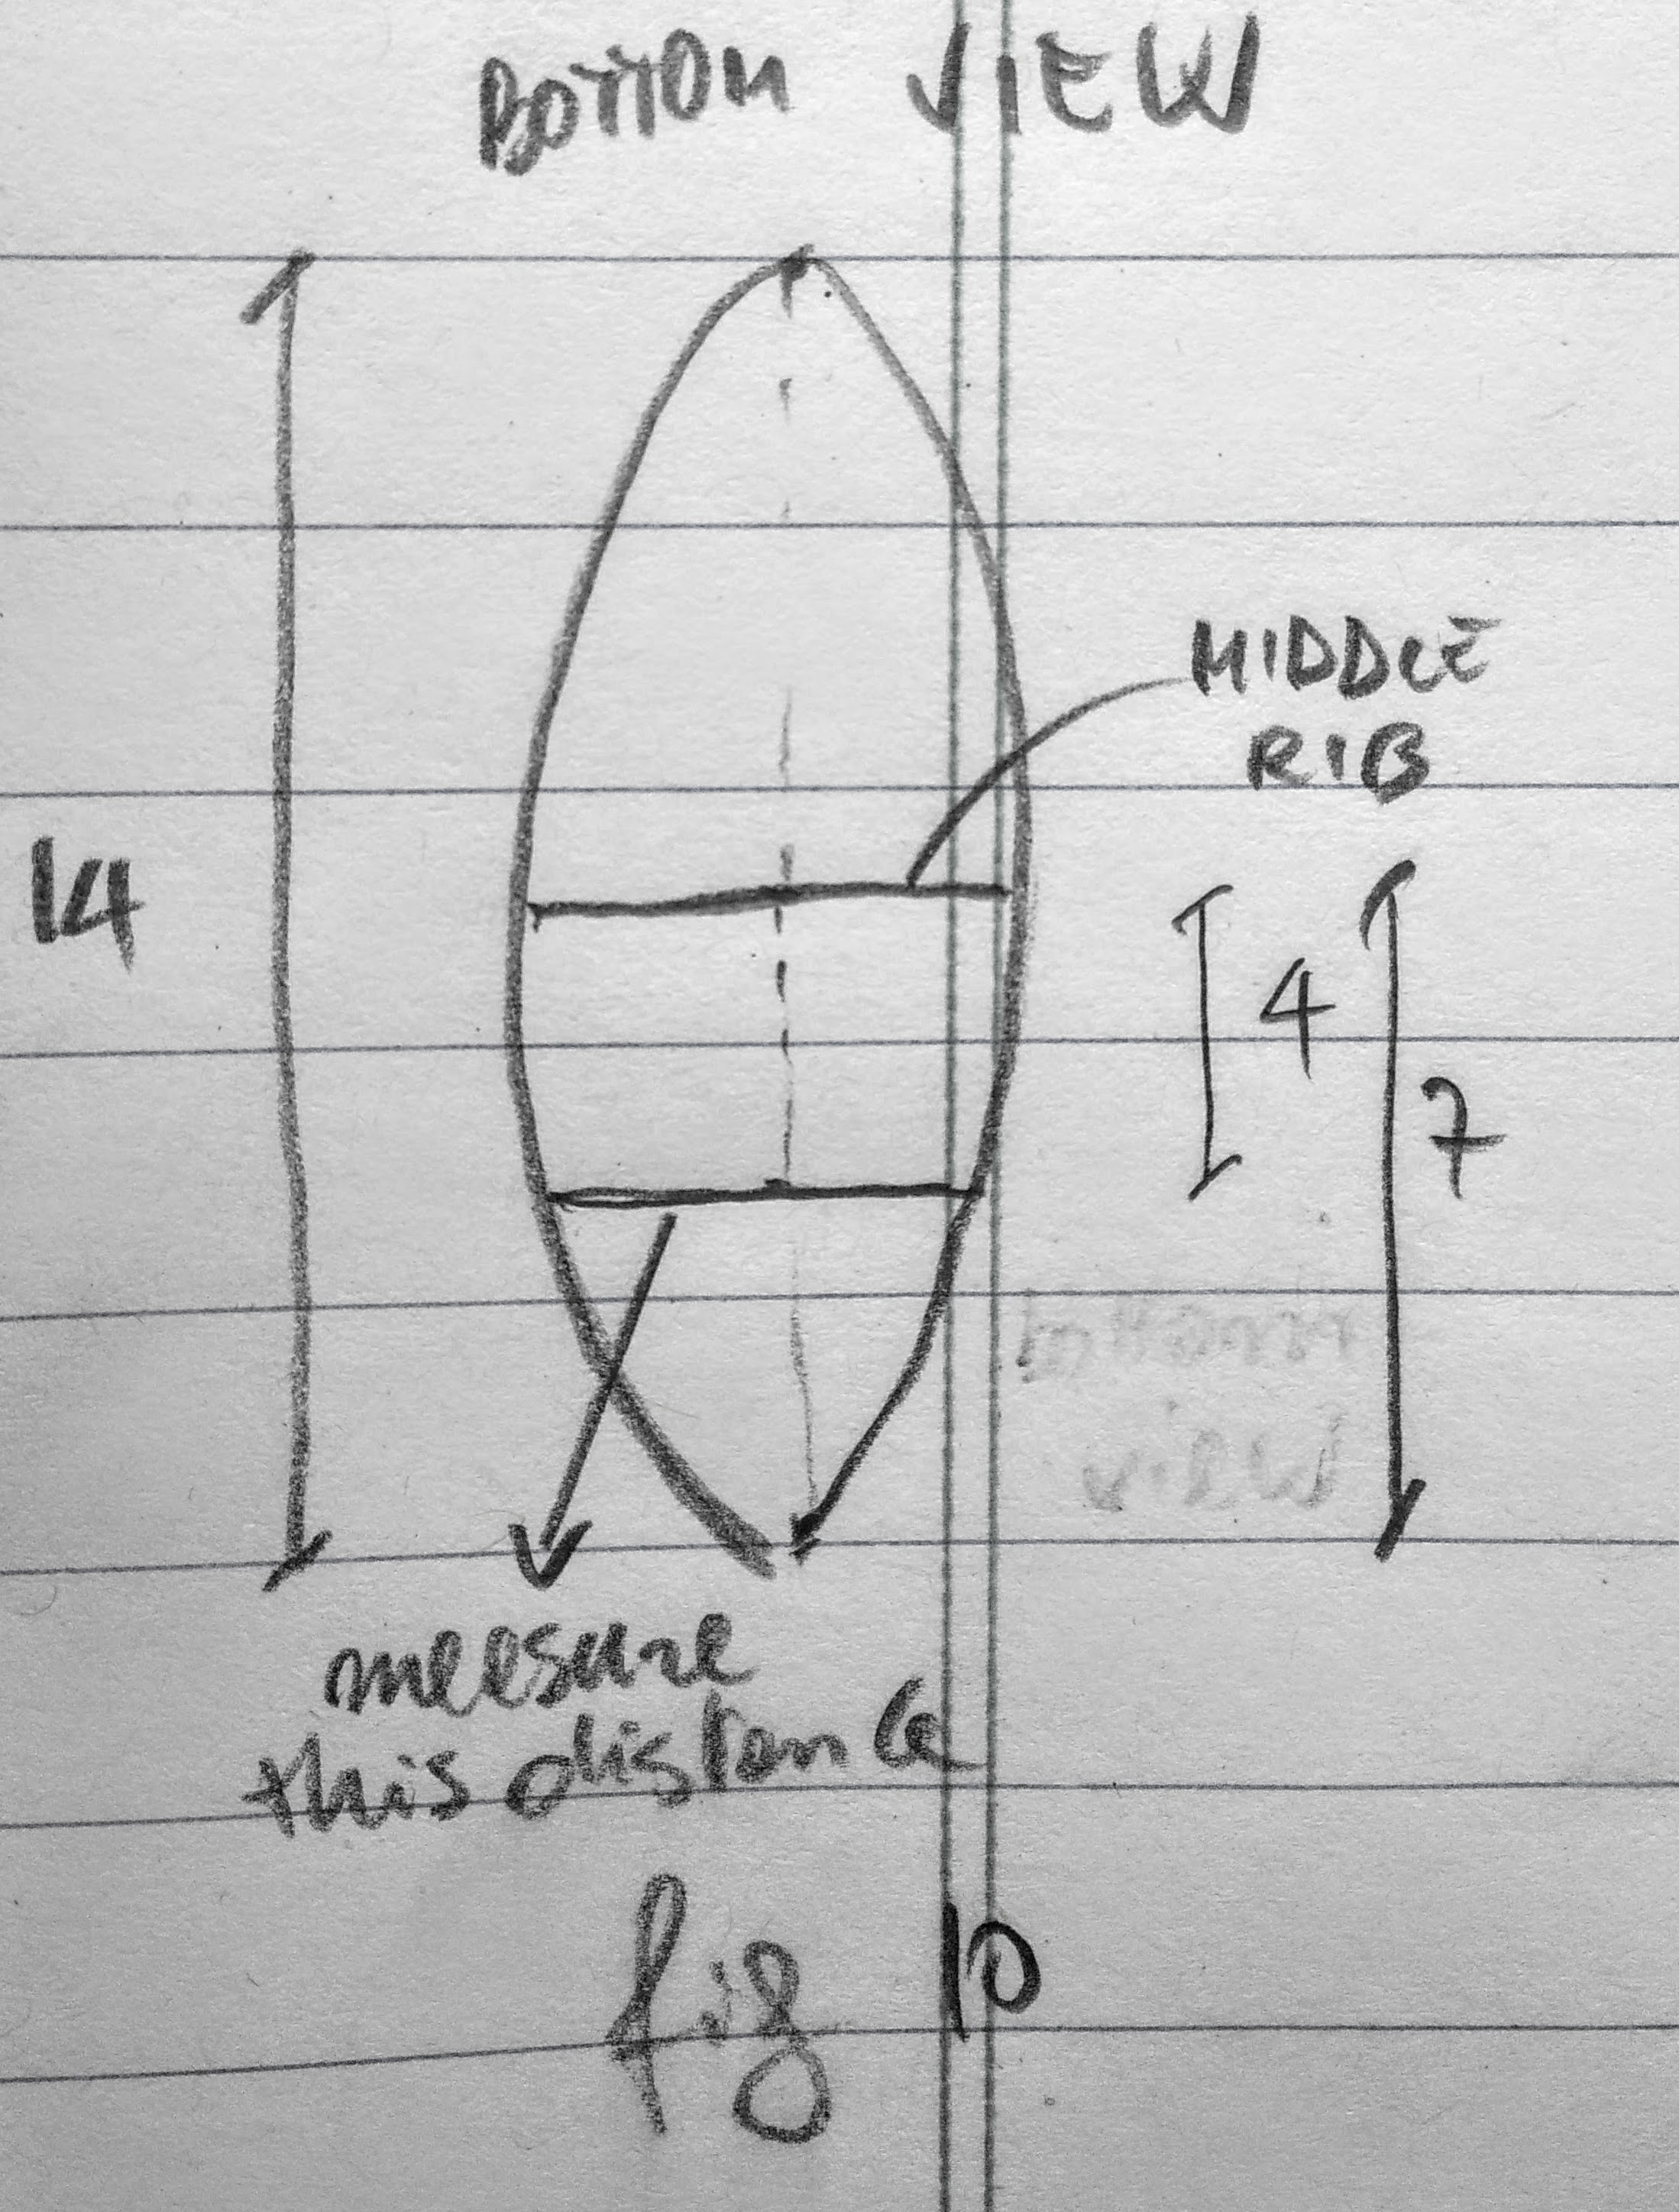 BOTTOM VIEW
MIDDLE
RIB
14
4
7
bottom
view
meesure
this distance
fig 10